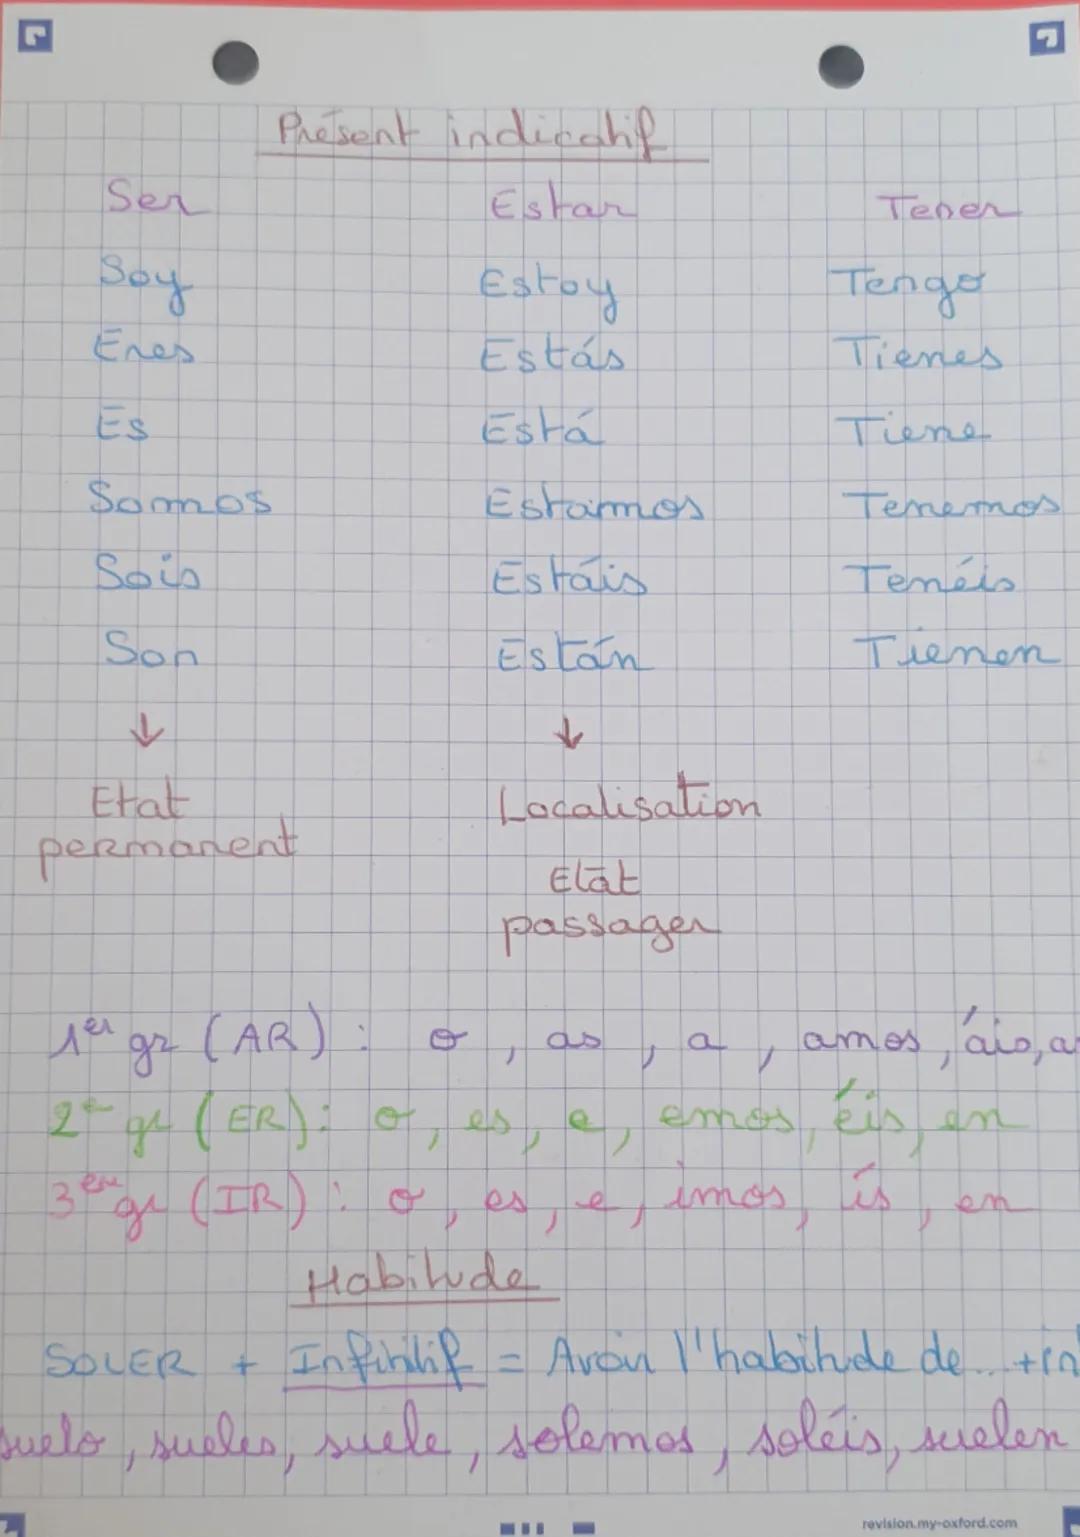 Présent indicatif
Ser Estar Tener
Soy Estoy Tengo
Eres Estás Tienes
Es Está Tiene
Somos Estamos Tenemos
Sois Estáis Tenéis
Son Están Tienen
↓ ↓
Etat Localisation
permanent
Etat
passager
1er gr (AR) : o, as, a, amos, áis, a
2e gr (ER) : o, es, e, emos, éis, en
3eme gr (IR) : o, es, e, imos, ís, en
Habitude
SOLER + Infinitif = Avoir l'habitude de... + in
suelo, sueles, suele, solemos, soléis, suelen
revision.my-oxford.com